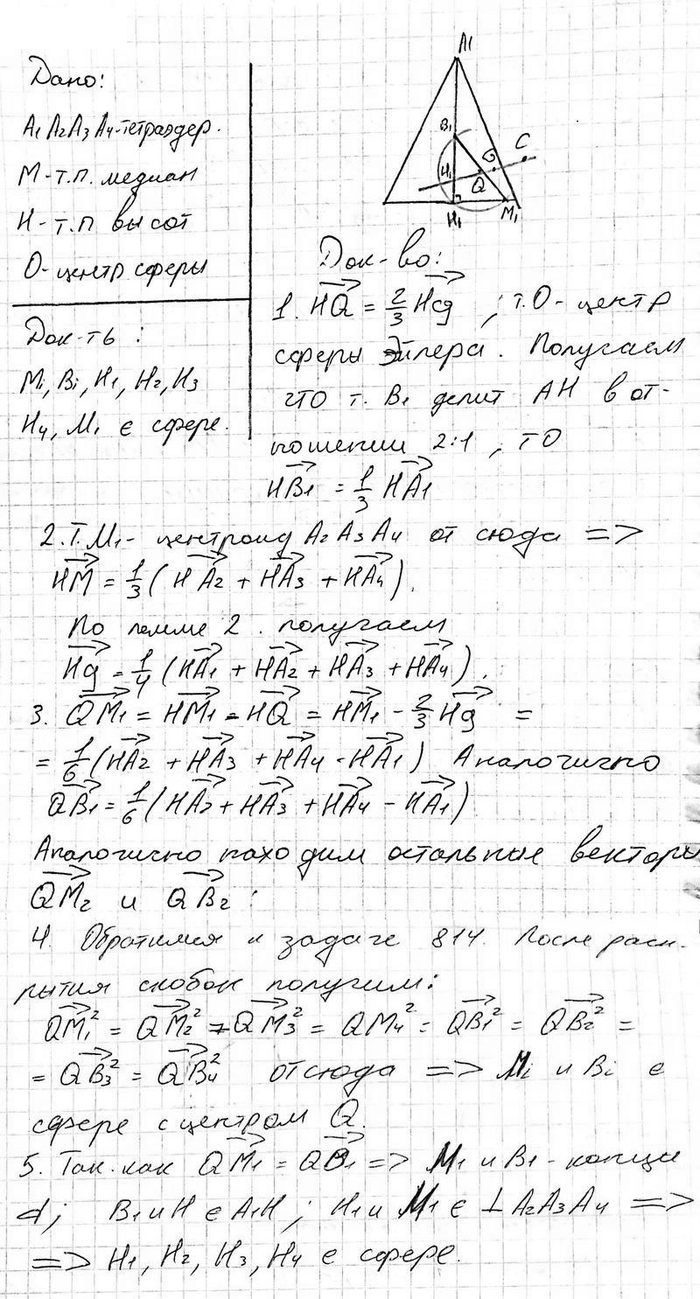 Дано:
A1A2A3A4-тетраэдер.
M-т.п. медиан
H-т.п высот
O-центр сферы
Док-ть:
Mi, Bi, H1, H2, H3
H4, M1 ∈ сфере.
A1
B1
G
C
H
Q
H1
M1
Док-во:
1. HQ = 2/3 Hg ; т.O-центр
сферы Эйлера. Получаем
что т. B1 делит AH в от-
ношении 2:1, то
HB1 = 1/3 HA1
2.Т.M1- центроид A2A3A4 от сюда =>
HM = 1/3 (HA2 + HA3 + HA4).
По лемме 2. получаем
Hg = 1/4 (HA1 + HA2 + HA3 + HA4).
3. QM1 = HM1 - HQ = HM1 - 2/3 Hg =
= 1/6 (HA2 + HA3 + HA4 - HA1) Аналогично
QB1 = 1/6 (HA2 + HA3 + HA4 - HA1)
Аналогично находим остальные векторы
QM2 и QB2:
4. Обратимся к задаче 814. После раск-
рытия скобок получим:
QM1² = QM2² = QM3² = QM4² = QB1² = QB2² =
= QB3² = QB4² отсюда => Mi и Bi ∈
сфере с центром Q.
5. Так.как QM1 = QB1 => M1 и B1 - концы
d; B1 и H ∈ A1H; H1 и M1 ∈ ⊥ A2A3A4 =>
=> H1, H2, H3, H4 ∈ сфере.